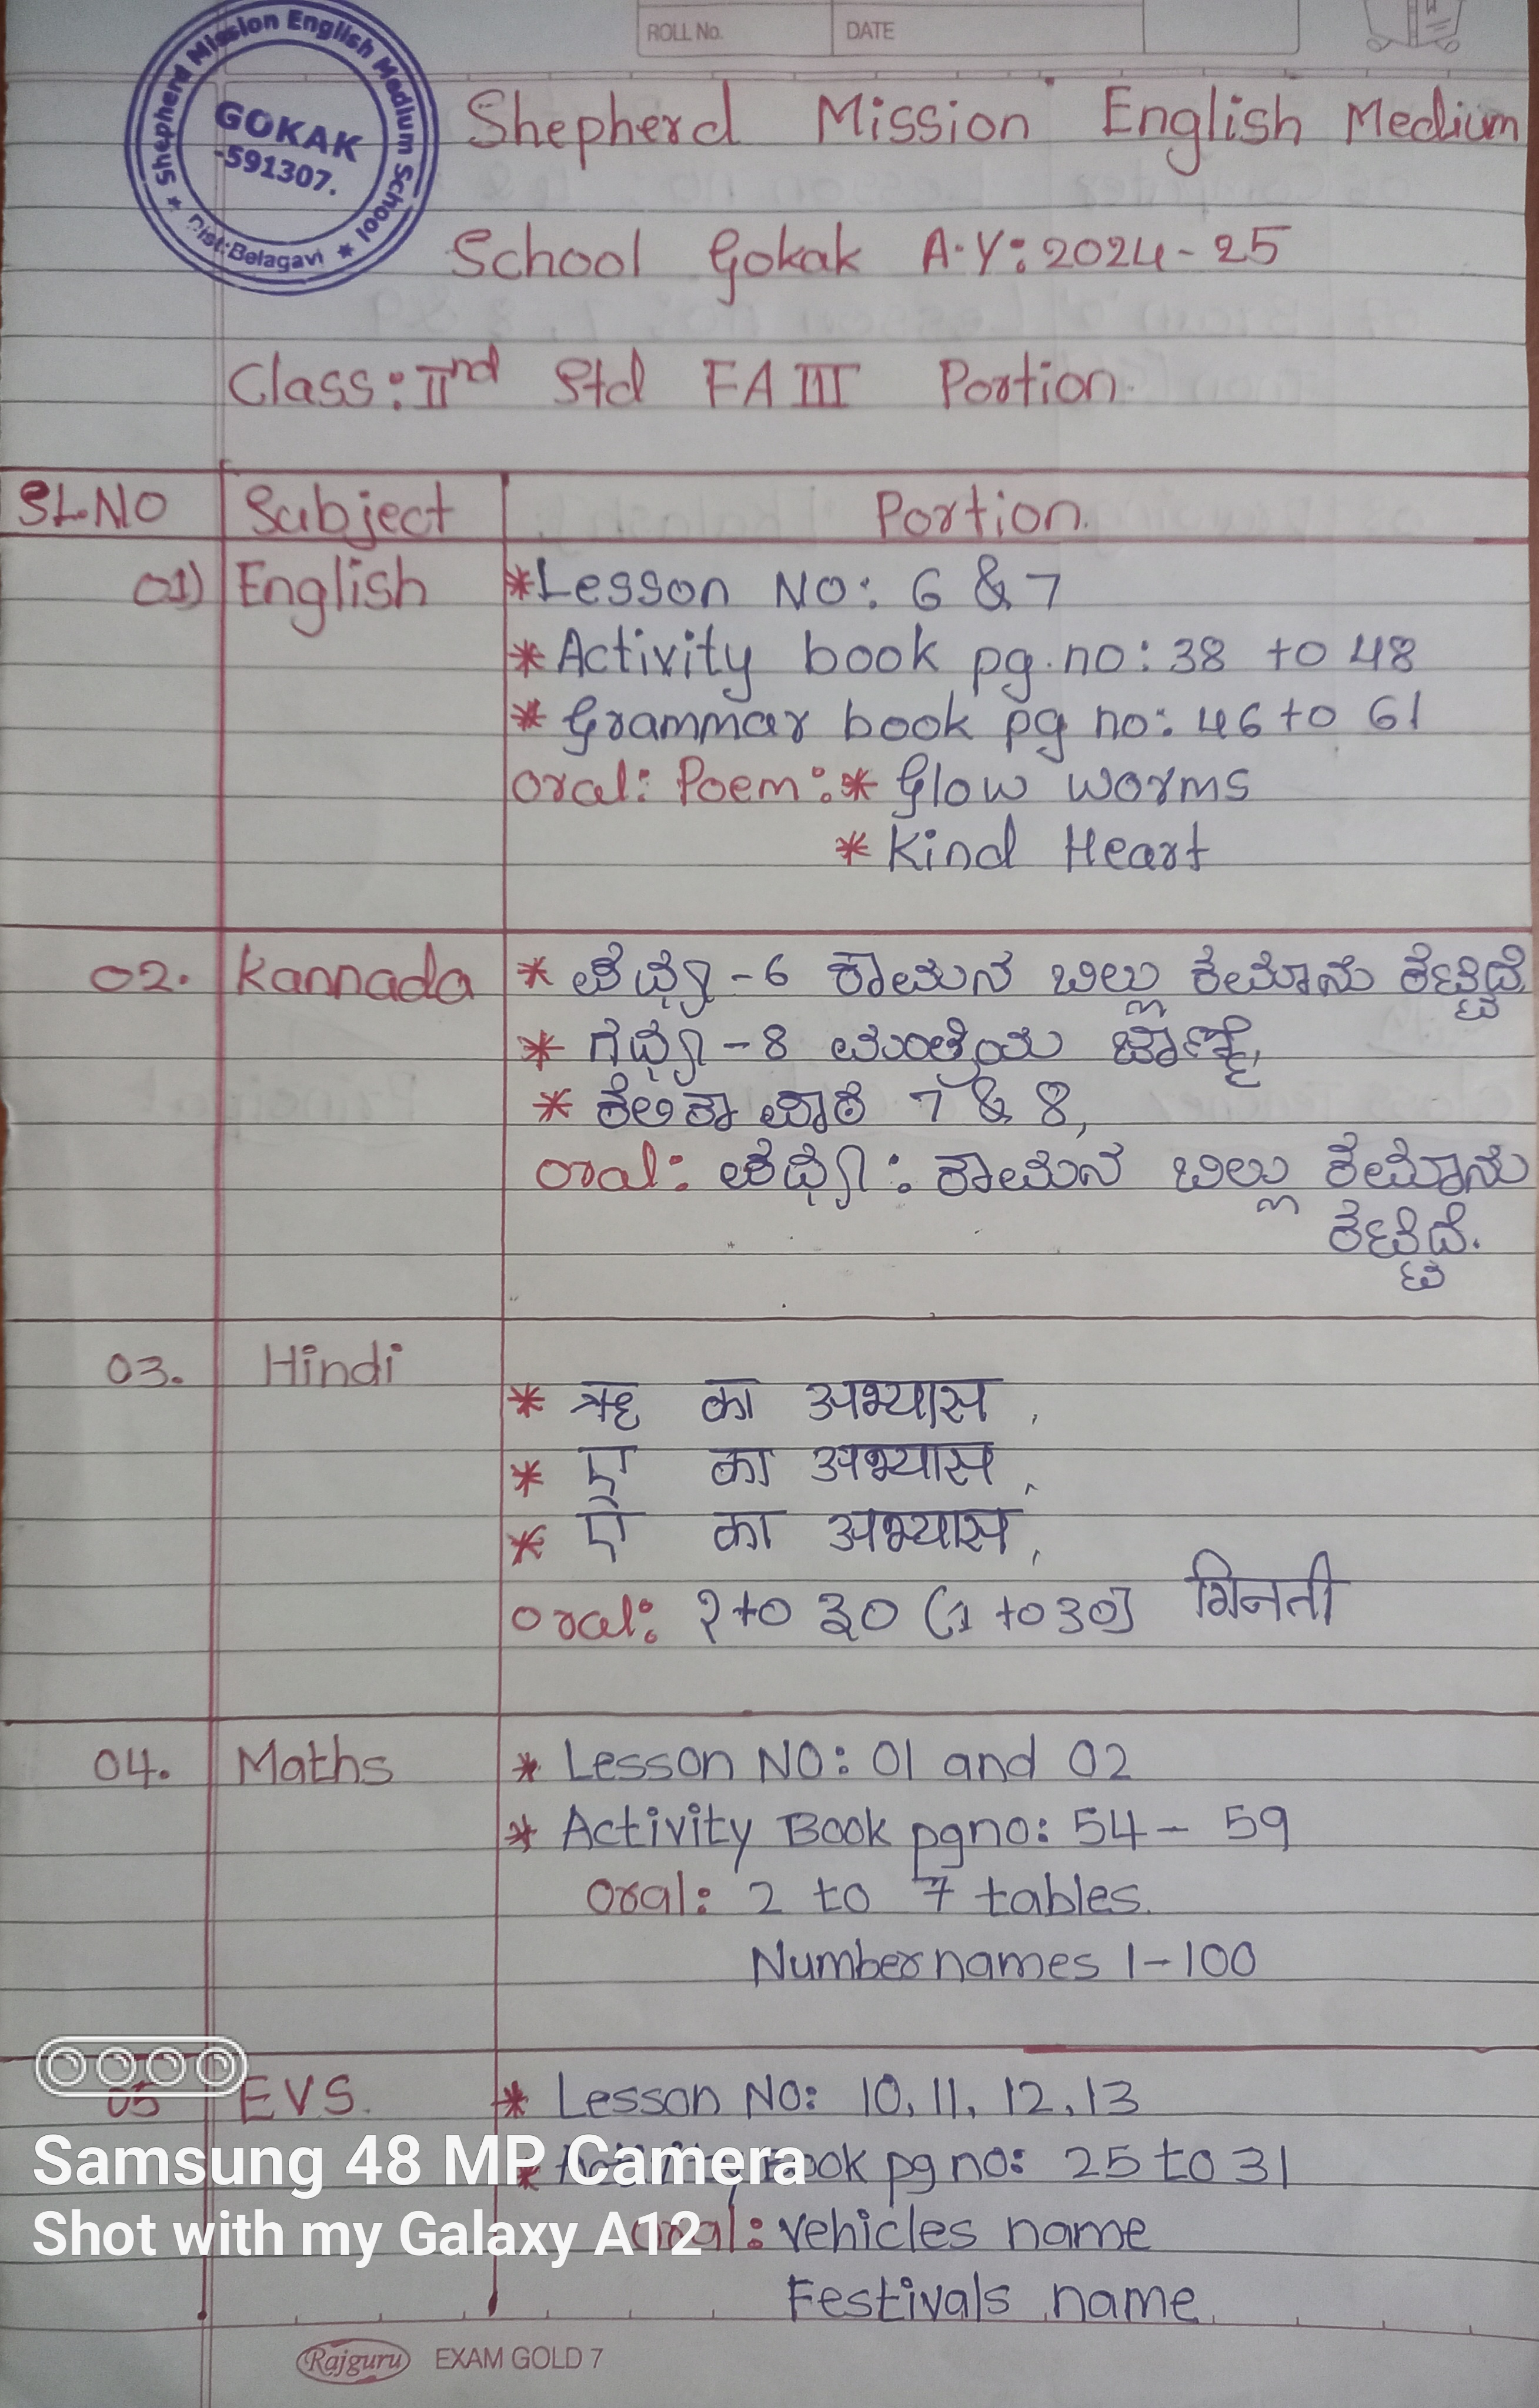 ROLL No. DATE
Shepherd Mission English Medium School
GOKAK
-591307.
Dist:Belagavi
Shepherd Mission English Medium
School Gokak A.Y: 2024-25
Class: IInd Std FA III Portion.
SL.NO Subject Portion.
01) English *Lesson NO: 6 & 7
* Activity book pg.no: 38 to 48
* Grammar book pg no: 46 to 61
Oral: Poem: * Glow worms
* Kind Heart
02. Kannada * ಪದ್ಯ - 6 ಕಾಮನ ಬಿಲ್ಲು ಕಮಾನು ಕಟ್ಟಿದೆ
* ಗದ್ಯ - 8 ಮಂತ್ರಿಯ ಜಾಣ್ಮೆ,
* ಕಲಿಕಾ ಹಾಳೆ 7 & 8,
Oral: ಪದ್ಯ: ಕಾಮನ ಬಿಲ್ಲು ಕಮಾನು
ಕಟ್ಟಿದೆ.
03. Hindi
* ऋ का अभ्यास,
* ए का अभ्यास,
* ऐ का अभ्यास,
Oral: १ to ३० (1 to 30) गिनती
04. Maths * Lesson NO: 01 and 02
* Activity Book pgno: 54 - 59
Oral: 2 to 7 tables.
Number names 1-100
05 EVS. * Lesson No: 10, 11, 12, 13
* Activity Book pg no: 25 to 31
Oral: vehicles name
Festivals name.
Samsung 48 MP Camera
Shot with my Galaxy A12
Rajguru EXAM GOLD 7